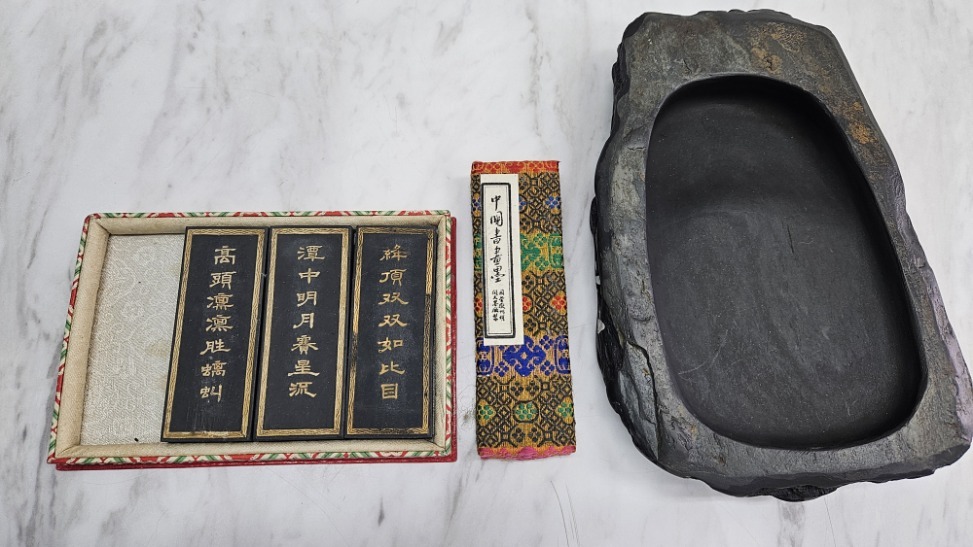 絳頂双双如比目
潭中明月賽星沉
高頭凜凜胜螭虯
中國書畫墨